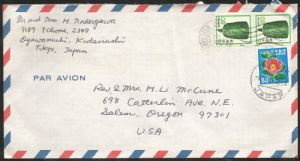 Mr and Mrs. H. Nakagawa
7189 1chome, 2349
Ogawamachi, Kodairashi
Tokyo, Japan
PAR AVION
Rev & Mrs. H. W. McCune
698 Catterlin Ave N.E.
Salem, Oregon 97301
USA
JAPAN